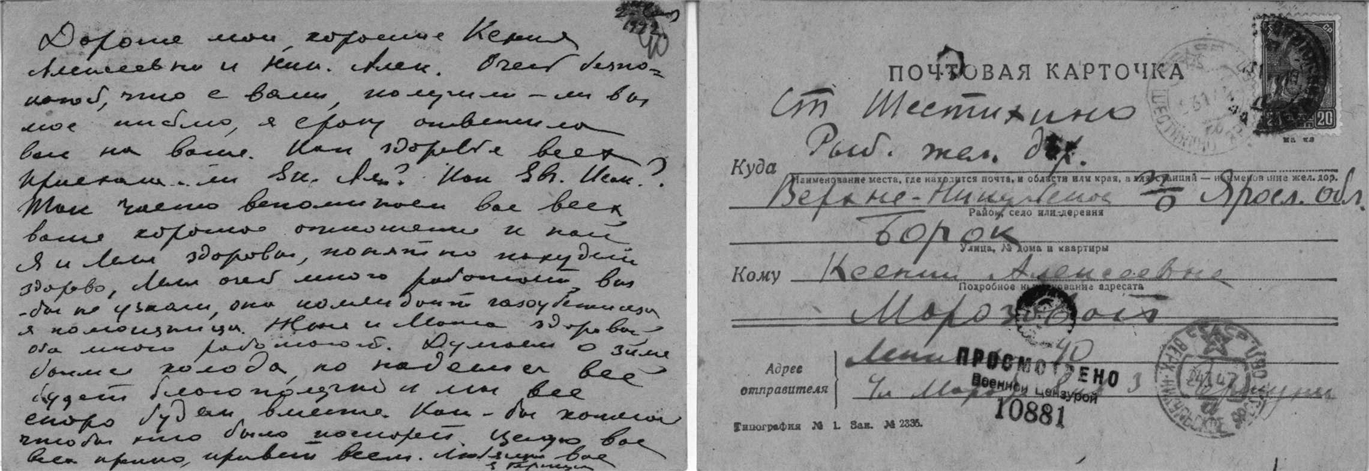 Дорогие мои, хорошие Ксения
Алексеевна и Ник. Алек. Очень беспо-
что с вами, получили-ли вы
мое письмо, я сразу ответила
вам на ваше. Как здоровье всех
Приехала-ли Ек. ? Как Ев. ?
Так часто вспоминаем вас всех
ваше хорошее отношение к нам
Я и здоровы, понятно похудели
здорово, очень много работает, вы
-бы не узнали, она
я помощница. и здоровы
оба много работают. Думаем о зиме
холода, но надеемся всё
будет благополучно и мы все
скоро будем вместе. Как-бы хотела
чтобы это было поскорей. Целую вас
всех крепко, привет всем. Любящая вас
1942
ПОЧТОВАЯ КАРТОЧКА
20 20
Ст Шестихино
Куда Рыб. жел. дор.
Наименование места, где находится почта, и области или края, а для станций — наименование жел. дор.
Верхне-Никульское п/о Яросл. обл.
Район, село или деревня
Борок
Улица, № дома и квартиры
Кому Ксении Алексеевне
Подробное наименование адресата
Морозовой
Адрес отправителя
40
Ул 3
ПРОСМОТРЕНО
Военной Цензурой
10881
Типография № 1. Зак. № 2335.